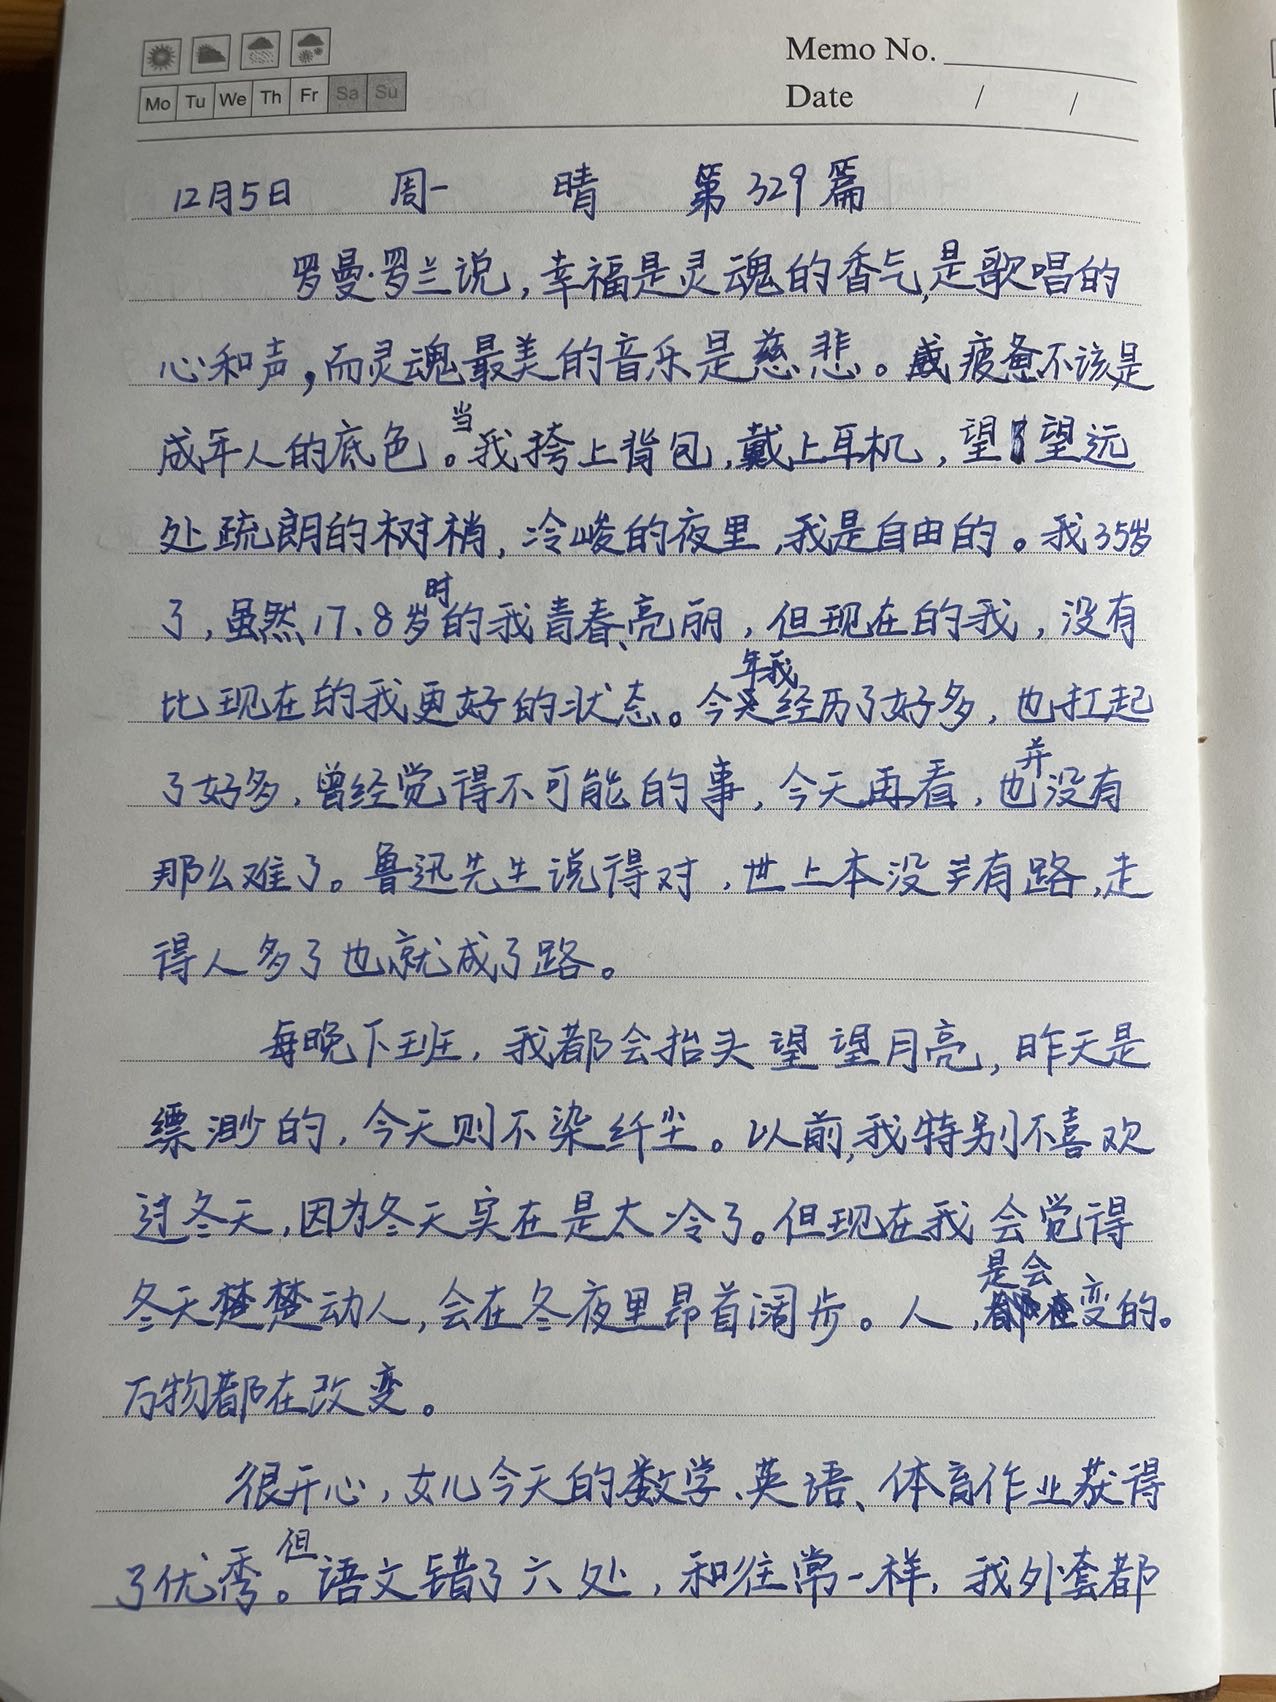 Memo No.
Mo Tu We Th Fr Sa Su
Date / /
12月5日 周一 晴 第329篇
罗曼·罗兰说，幸福是灵魂的香气，是歌唱的
心和声，而灵魂最美的音乐是慈悲。疲惫不该是
成年人的底色。当我挎上背包，戴上耳机，望望远
处疏朗的树梢，冷峻的夜里，我是自由的。我35岁
了，虽然17、8岁时的我青春、亮丽，但现在的我，没有
比现在的我更好的状态。今年我经历了好多，也扛起
了好多，曾经觉得不可能的事，今天再看，也并没有
那么难了。鲁迅先生说得对，世上本没有路，走
得人多了也就成了路。
每晚下班，我都会抬头望望月亮，昨天是
缥渺的，今天则不染纤尘。以前，我特别不喜欢
过冬天，因为冬天实在是太冷了。但现在我会觉得
冬天楚楚动人，会在冬夜里昂首阔步。人，是会变的。
万物都在改变。
很开心，女儿今天的数学、英语、体育作业获得
了优秀。但语文错了六处，和往常一样，我外套都